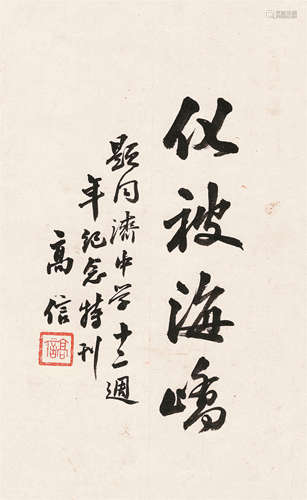 化被海嶠
題同濟中学十二週
年紀念特刊
高信
高信